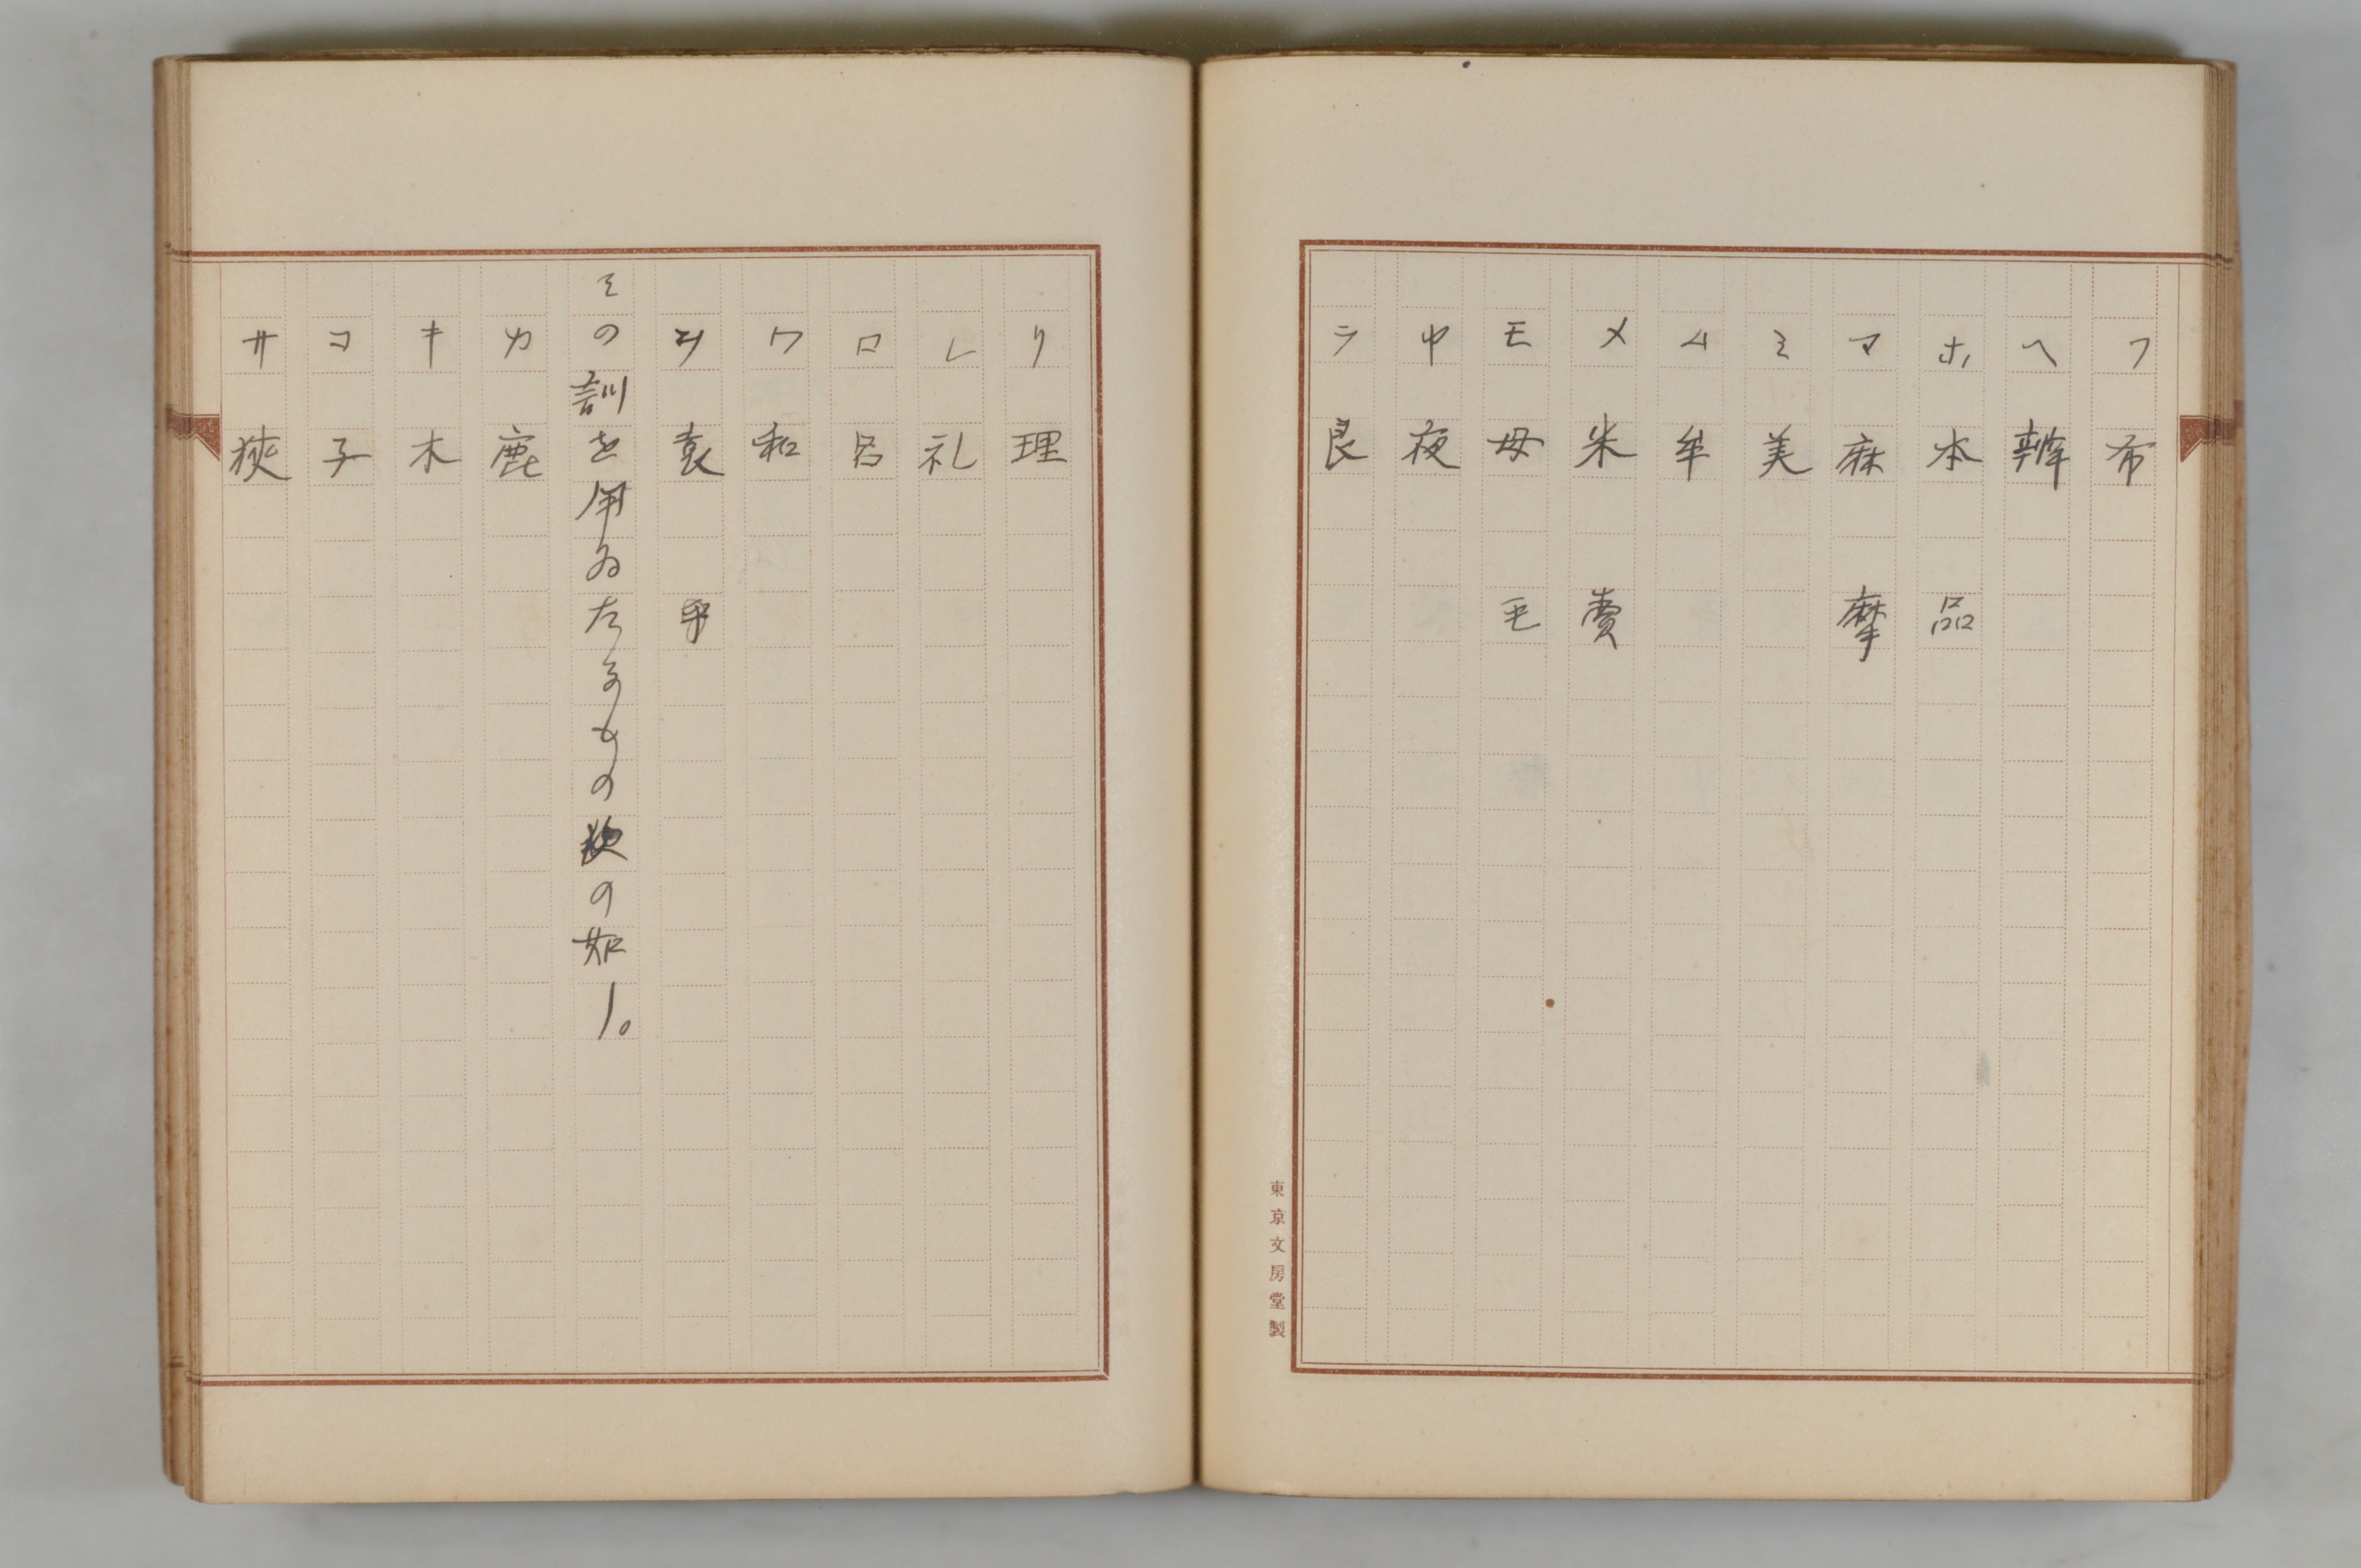 フ 布
ヘ 弊
ホ 本 品
マ 麻 摩
ミ 美
ム 牟
メ 米 賣
モ 母 毛
ヤ 夜
ラ 良
東京文房堂製
リ 理
レ 礼
ロ 呂
ワ 和
ヲ 袁 乎
その訓を用ゐたるもの次の如し。
カ 鹿
キ 木
コ 子
サ 狹